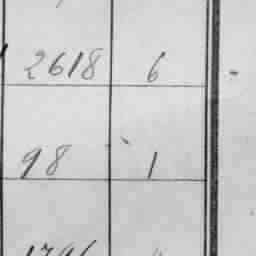 2618 6
98 1